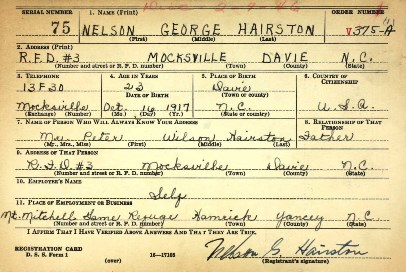 SERIAL NUMBER 1. NAME (Print) ORDER NUMBER
75 NELSON GEORGE HAIRSTON V375-A
(First) (Middle) (Last)
2. ADDRESS (Print)
R.F.D. #3 MOCKSVILLE DAVIE N.C.
(Number and street or R. F. D. number) (Town) (County) (State)
3. TELEPHONE 4. AGE IN YEARS 5. PLACE OF BIRTH 6. COUNTRY OF CITIZENSHIP
13F30 23 Davie
DATE OF BIRTH (Town or county)
Mocksville Oct. 16 1917 N.C. U.S.A
(Exchange) (Number) (Mo.) (Day) (Yr.) (State or country)
7. NAME OF PERSON WHO WILL ALWAYS KNOW YOUR ADDRESS 8. RELATIONSHIP OF THAT PERSON
Mr. Peter Wilson Hairston Father
(Mr., Mrs., Miss) (First) (Middle) (Last)
9. ADDRESS OF THAT PERSON
R.F.D. #3 Mocksville Davie N.C.
(Number and street or R. F. D. number) (Town) (County) (State)
10. EMPLOYER'S NAME
Self
11. PLACE OF EMPLOYMENT OR BUSINESS
Mt. Mitchell Game Refuge Hamrick Yancey N.C.
(Number and street or R. F. D. number) (Town) (County) (State)
I AFFIRM THAT I HAVE VERIFIED ABOVE ANSWERS AND THAT THEY ARE TRUE.
REGISTRATION CARD
D. S. S. Form 1 (over) 16—17105 Nelson G. Hairston
(Registrant's signature)